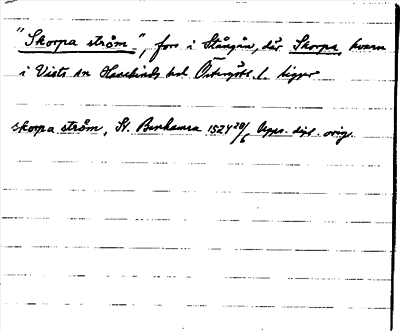 "Skorpa ström", fors i Stångån, där Skorpa kvarn
i Vists sn Hanekinds hd Östergötl. l. ligger
skorpa ström, St. Benhamra 1524 20/6 Upps. dipl. orig.